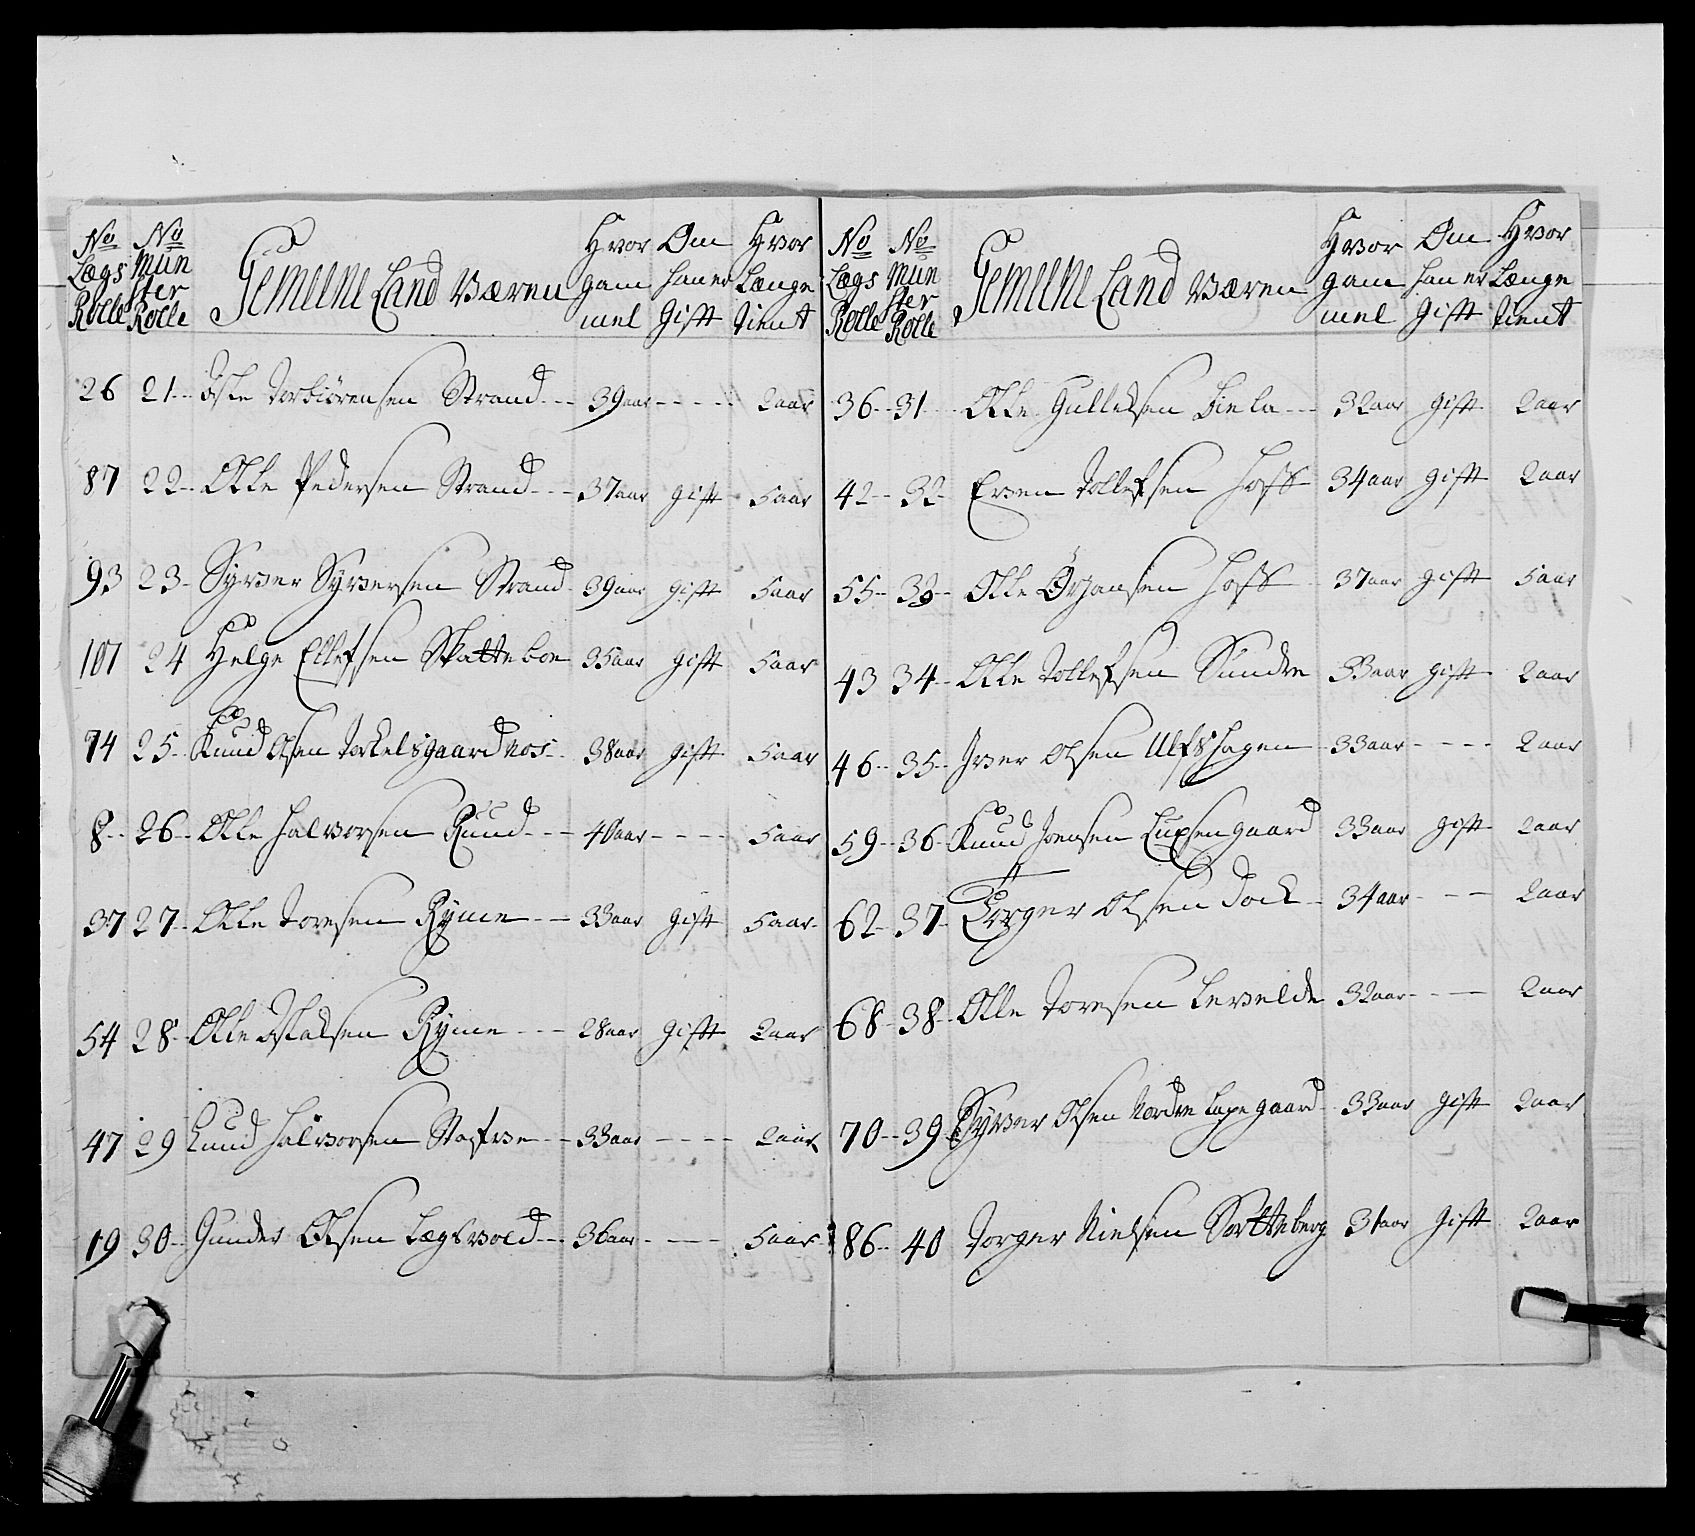 No Lægs Rolle | No Mun ster Rolle | Gemeene Land Væren | Hvor gam mel | Om han er Gift | Hvor Længe tient
26 21 Torbiørensen Strand 39 aar 2 aar
87 22 Olle Pedersen Strand 37 aar gift 5 aar
93 23 Syver Syversen Strand 39 aar gift 5 aar
101 24 Helge Ellefsen Skatteboe 35 aar gift 5 aar
74 25 Knud Olsen Torkelsgaard 38 aar gift 5 aar
8 26 Olle Halvorsen Ruud 40 aar 5 aar
37 27 Olle Toresen Ryme 33 aar gift 5 aar
54 28 Olle Ryme 28 aar Gift 2 aar
47 29 Knud Halvorsen 33 aar 2 aar
19 30 Gunder Olsen Lægsvold 36 aar 5 aar
No Lægs Rolle | No Mun ster Rolle | Gemeene Land Væren | Hvor gam mel | Om han er Gift | Hvor Længe tient
36 31 Olle Gullesen Biela 32 aar gift 2 aar
42 32 Even Tollefsen Hoff 34 aar gift 2 aar
55 33 Olle Ørjansen Hoff 37 aar gift 5 aar
43 34 Olle Tollefsen Sundre 33 aar gift 2 aar
46 35 Iver Olsen Ulfshagen 33 aar 2 aar
59 36 Knud Joensen 33 aar gift 2 aar
62 37 Torger Olsen Dock 34 aar 2 aar
68 38 Olle Toresen Levelde 32 aar 2 aar
70 39 Syver Olsen Nordre 33 aar gift 2 aar
86 40 Torger Nielsen Sortteberg 31 aar gift 2 aar